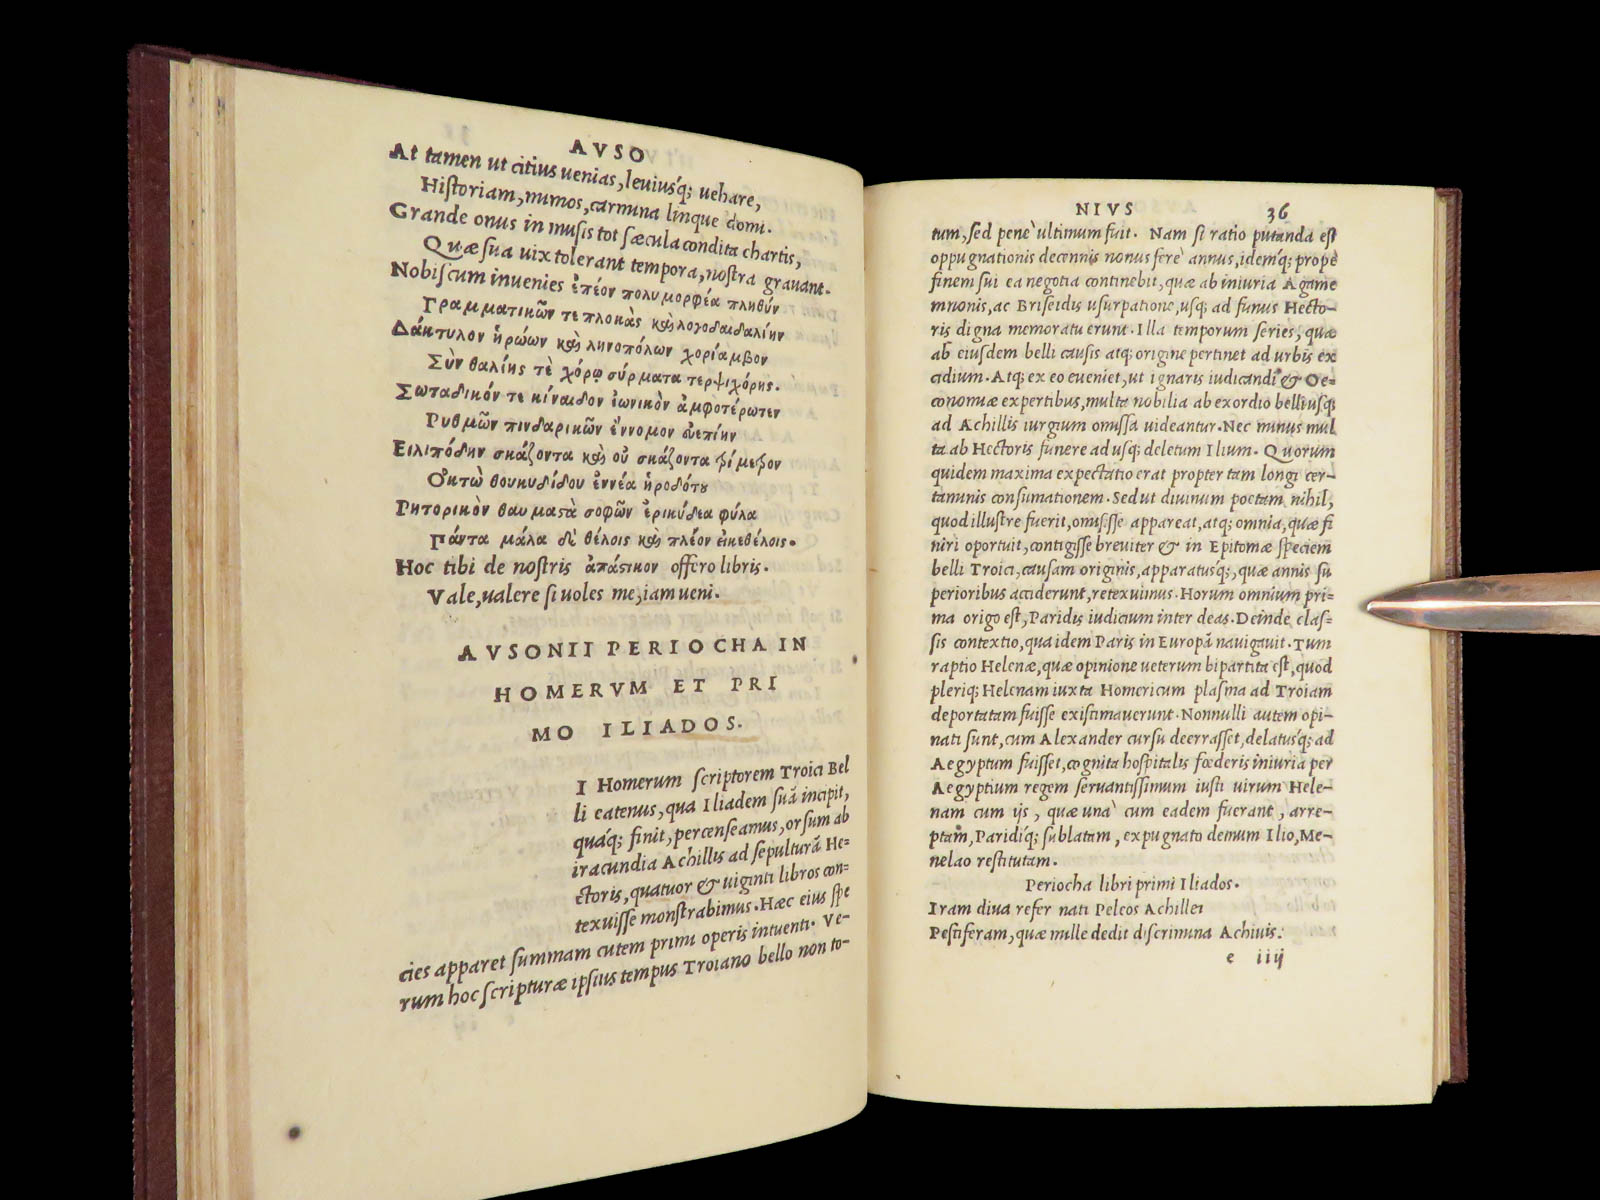 AVSO
At tamen ut citius uenias, leuius'q; uehare,
Historiam, mimos, carmina linque domi.
Grande onus in musis tot sæcula condita chartis,
Quæ sua uix tolerant tempora, nostra grauant.
Nobiscum inuenies ἐπέον πολυμορφέα πληθύν
Γραμματικῶν τε πλοκὰς καὶ λογοδαιδαλίην
Δάκτυλον ἡρώων καὶ ληνοπόλων χορίαμβον
Σὺν θαλίης τὲ χόρῳ σύρματα τερψιχόρης.
Σωταδικόν τε κίναιδον ἰωνικὸν ἀμφοτέρωτεν
Ρυθμῶν πινδαρικῶν ἔννομον
Ειλιπόδην σκάζοντα καὶ οὐ σκάζοντα
Οκτὼ θουκυδίδου ἐννέα ἡροδότου
Ρητορικὸν θαυμαστὰ σοφῶν ἐρικύδεα φύλα
Πάντα μάλα θέλοις καὶ πλέον
Hoc tibi de nostris offero libris.
Vale, ualere si uoles me, iam ueni.
AVSONII PERIOCHA IN
HOMERVM ET PRI
MO ILIADOS.
I Homerum scriptorem Troici Bel
li eatenus, qua Iliadem suā incipit,
quá'q; finit, percenseamus, orsum ab
iracundia Achillis ad sepulturā He=
ctoris, quatuor & uiginti libros con=
texuisse monstrabimus. Hæc eius spe
cies apparet summam cutem primi operis intuenti. Ve-
rum hoc scripturæ ipsius tempus Troiano bello non to-
NIVS 36
tum, sed penè ultimum fuit. Nam si ratio putanda est
oppugnationis decennis nonus ferè annus, idem'q; propè
finem sui ea negotia continebit, quæ ab iniuria Agame
mnonis, ac Briseidis usurpatione, usq; ad funus Hecto-
ris digna memoratu erunt. Illa temporum series, quæ
ab eiusdem belli causis atq; origine pertinet ad urbis ex
cidium. Atq; ex eo eueniet, ut ignaris iudicandi & Oe=
conomiæ expertibus, multa nobilia ab exordio belli usq;
ad Achillis iurgium omissa uideantur. Nec minus mul
ta ab Hectoris funere ad usq; deletum Ilium. Quorum
quidem maxima expectatio erat propter tam longi cer-
taminis consumationem. Sed ut diuinum poetam nihil,
quod illustre fuerit, omisisse appareat, atq; omnia, quæ fi
niri oportuit, contigisse breuiter & in Epitomæ speciem
belli Troici, causam originis, apparatus'q;, quæ annis su
perioribus acciderunt, retexuimus. Horum omnium pri=
ma origo est, Paridis iudicium inter deas. Deinde clas=
sis contextio, qua idem Paris in Europā nauigauit. Tum
raptio Helenæ, quæ opinione ueterum bipartita est, quod
pleriq; Helenam iuxta Homericum plasma ad Troiam
deportatam fuisse existimauerunt. Nonnulli autem opi-
nati sunt, cum Alexander cursu deerrasset, delatus'q; ad
Aegyptum fuisset, cognita hospitalis fœderis iniuria per
Aegyptium regem seruantissimum iusti uirum Hele-
nam cum ijs, quæ unà cum eadem fuerant, arre-
ptam, Paridi'q; sublatam, expugnato demum Ilio, Me-
nelao restitutam.
Periocha libri primi Iliados.
Iram diua refer nati Peleos Achillei
Pestiferam, quæ mille dedit discrimina Achiuis.
e iiij